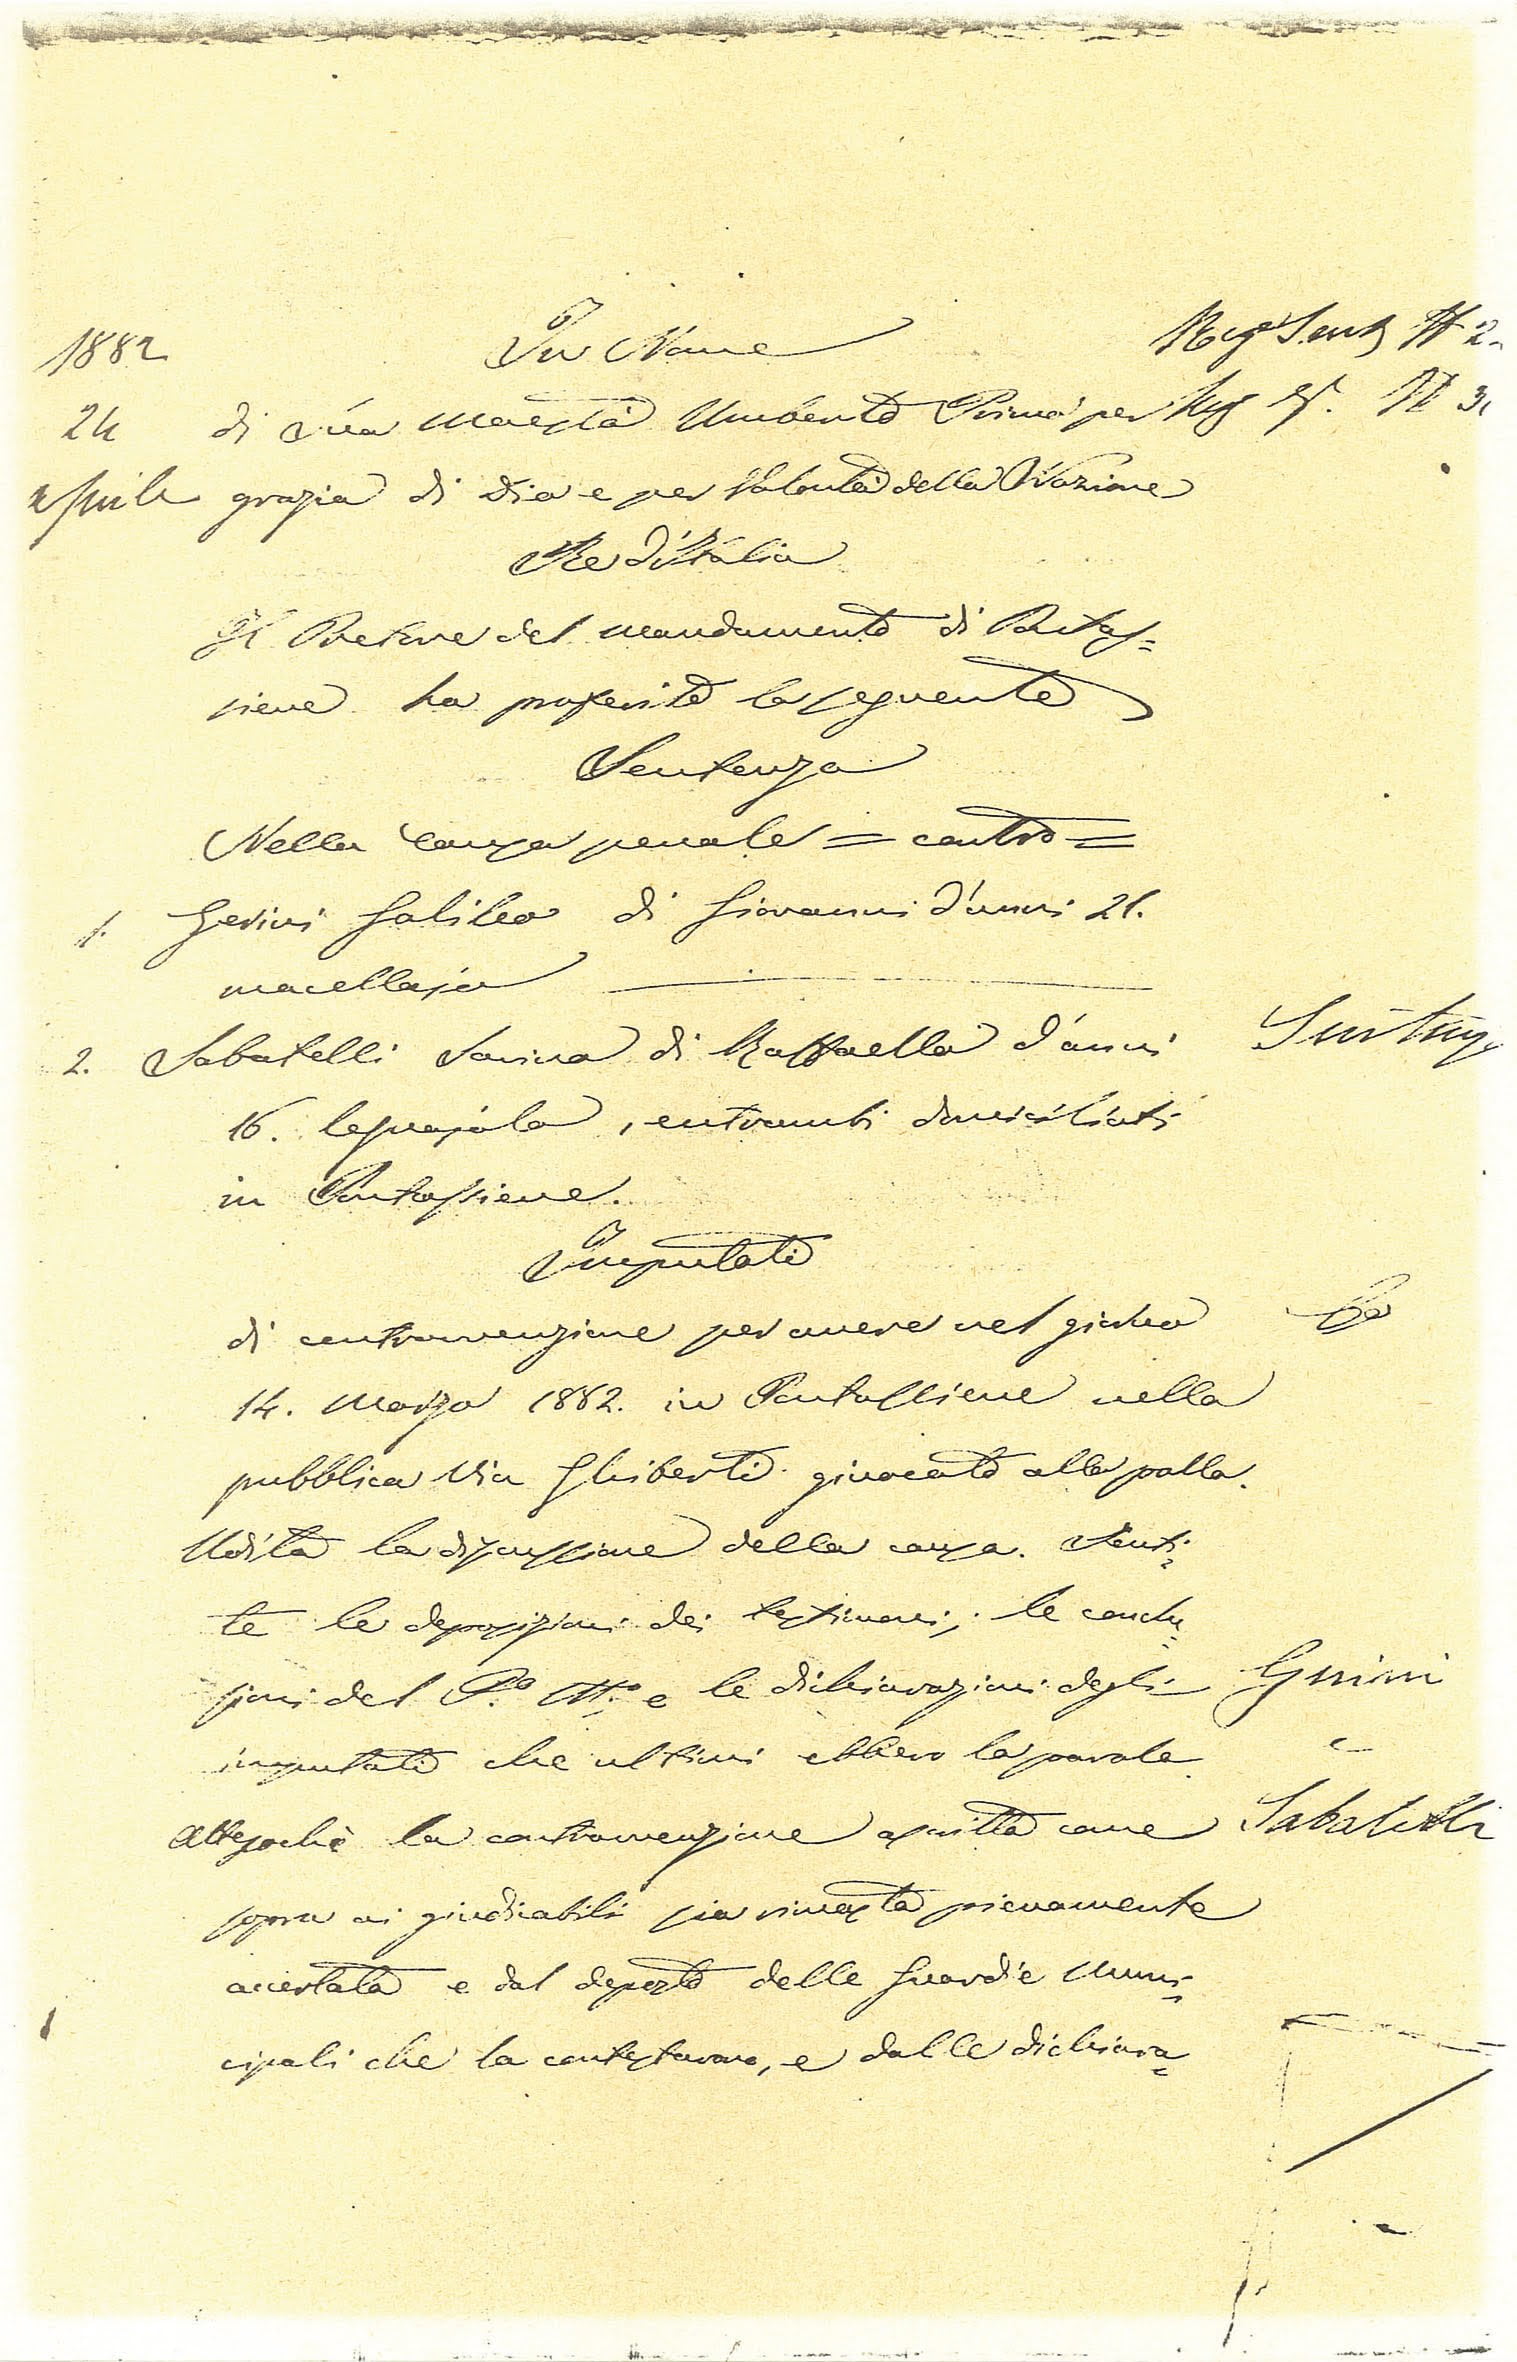 1882
In Nome
Reg. Sent. N 2
24
di Sua Maestà Umberto Primo per
Reg. N 3
Aprile
grazia di Dio e per Volontà della Nazione
Re d'Italia
Il Pretore del mandamento di Pontas=
sieve ha proferito la seguente
Sentenza
Nella Causa penale = contro =
1. Gerini Galileo di Giovanni d'anni 21.
macellajo
2. Sabatelli Savina di Raffaello d'anni
16. legnajolo, entrambi domiciliati
in Pontassieve.
Imputati
di contravvenzione per avere nel giorno
14. Marzo 1882. in Pontassieve nella
pubblica Via Ghiberti giuocato alla palla.
Udita la discussione della causa. Senti=
te le deposizioni dei testimoni, le conclu=
sioni del P.º M.º e le dichiarazioni degli
imputati che ultimi ebbero la parola
Attesochè la contravvenzione ascritta come
sopra ai giudicabili sia rimasta pienamente
accertata e dal deposto delle Guardie Muni=
cipali che la contestarono, e dalle dichiara=
Sentenza
Gerini
e
Sabatelli